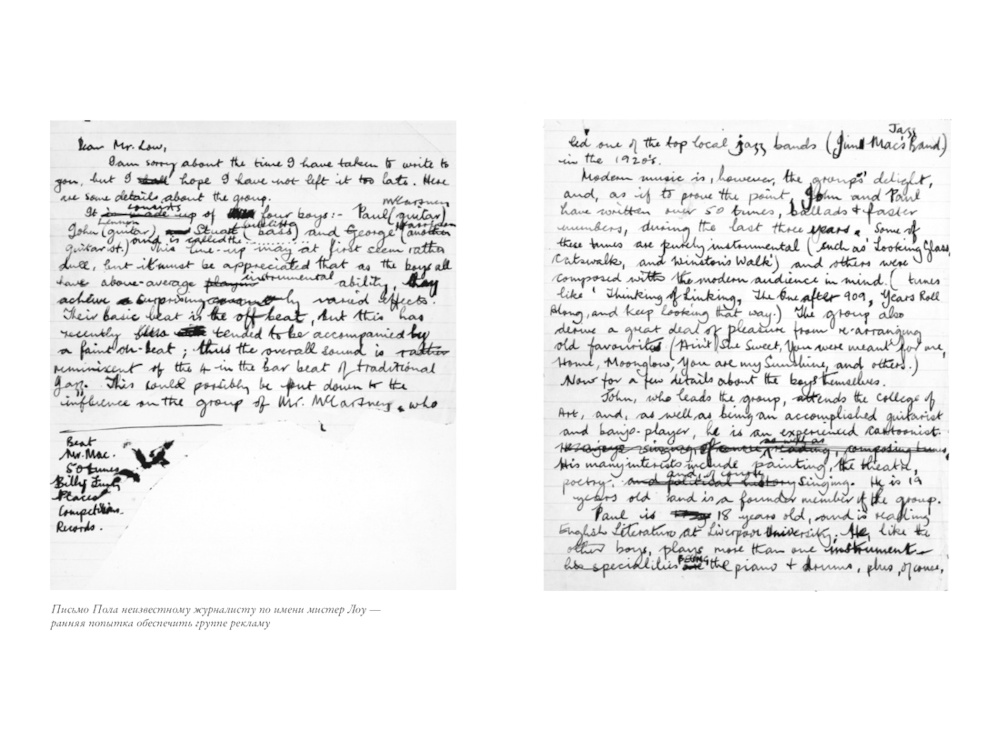 Dear Mr. Low,
I am sorry about the time I have taken to write to
you, but I hope I have not left it too late. Here
are some details about the group.
McCartney
It consists of four boys:- Paul (guitar)
Lennon Sutcliffe Harrison
John (guitar), Stuart (bass) and George (another
guitarist) and is called the . . . . . . . .
This line-up may at first seem rather
dull, but it must be appreciated that as the boys all
have above-average instrumental ability, they
achieve surprisingly varied effects.
Their basic beat is the off beat, but this has
recently tended to be accompanied by
a faint on-beat; thus the overall sound is rather
reminiscent of the 4 in the bar beat of traditional
jazz. This could possibly be put down to the
influence on the group of Mr. McCartney, who
Beat
Mr. Mac.
50 tunes
Billy Fury
Places
Competitions.
Records.
Письмо Пола неизвестному журналисту по имени мистер Лоу —
ранняя попытка обеспечить группе рекламу
Jazz
led one of the top local jazz bands (Jim Mac's Band)
in the 1920's.
Modern music is, however, the groups' delight,
and, as if to prove the point, John and Paul
have written over 50 tunes, ballads + faster
numbers, during the last three years. Some of
these tunes are purely instrumental (such as 'Looking Glass,
Catswalk, and Winston's Walk') and others were
composed with the modern audience in mind. (tunes
like 'Thinking of Linking, The One after 909, Years Roll
Along, and Keep looking that way.) The group also
derive a great deal of pleasure from re-arranging
old favourites (Ain't She Sweet, You were meant for me,
Home, Moonglow, You are my Sunshine, and others.)
Now for a few details about the boys themselves.
John, who leads the group, attends the College of
Art, and, as well as being an accomplished guitarist
and banjo-player, he is an experienced cartoonist.
as well as
His many interests include painting, the theatre,
and, of course,
poetry, and political history singing. He is 19
years old and is a founder member of the group.
Paul is 18 years old, and is reading
English Literature at Liverpool University. He, like the
other boys, plays more than one instrument –
his specialities being the piano + drums, plus, of course,